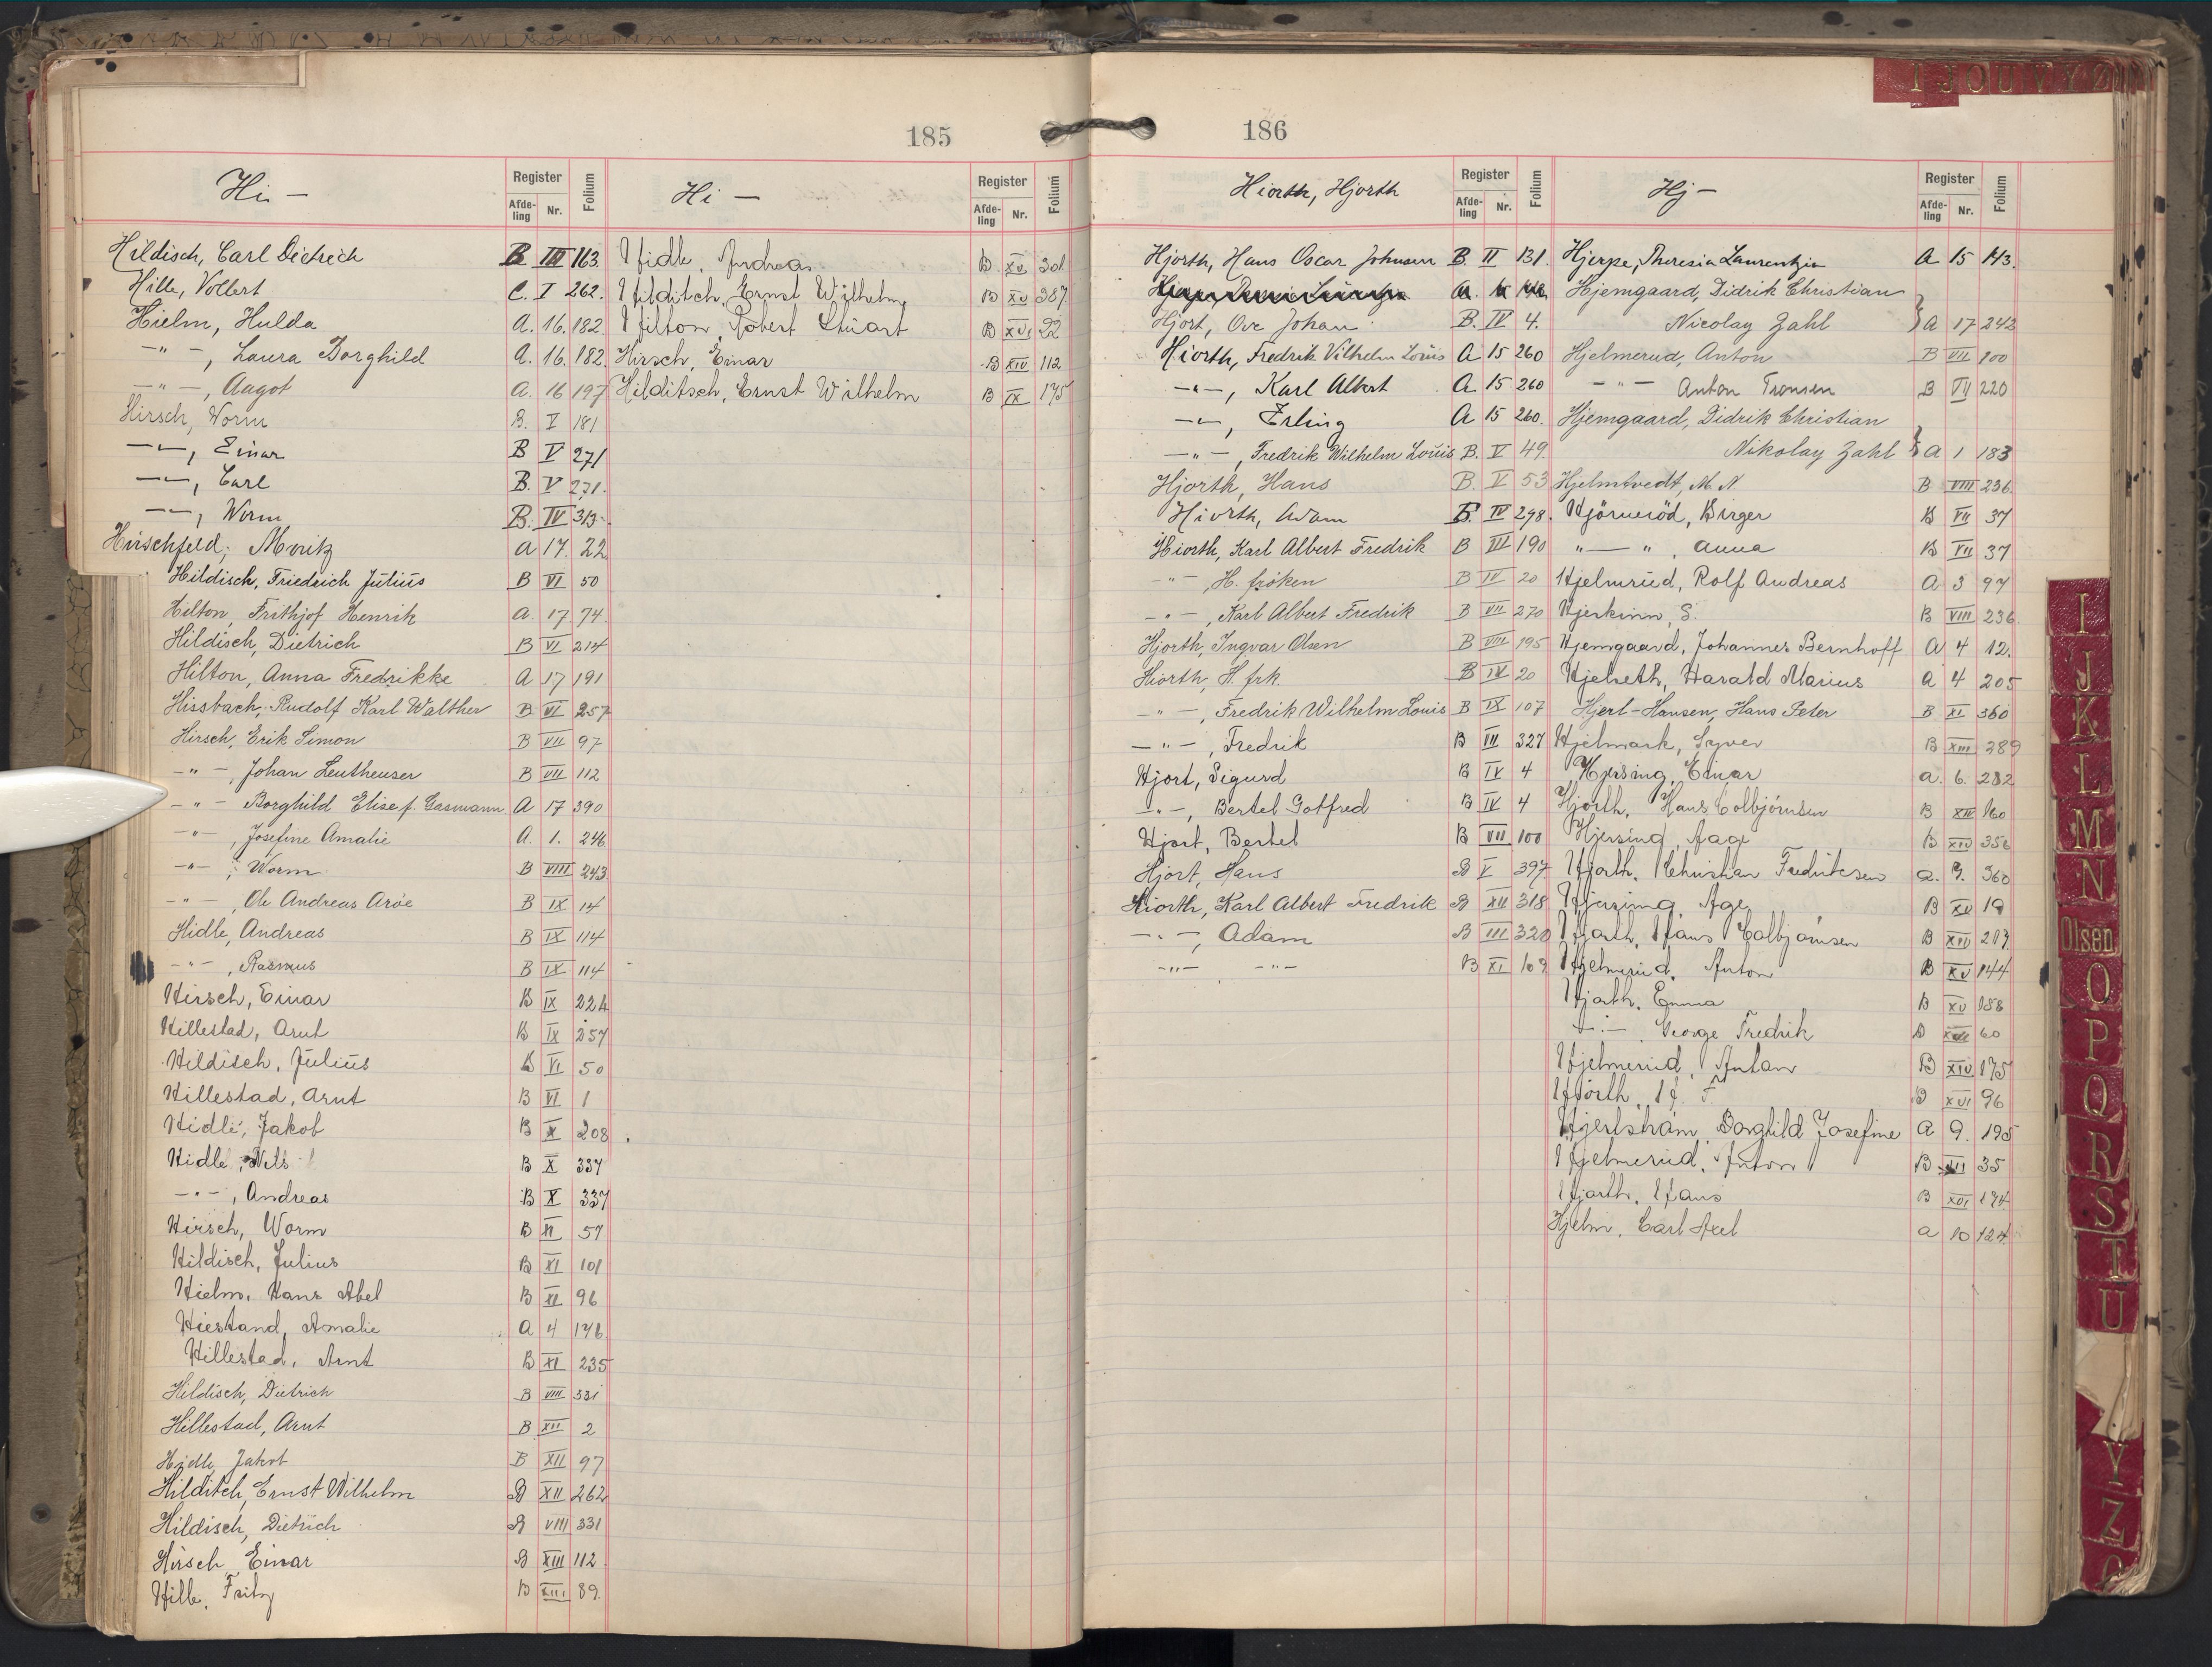 185
Hi –
Register
Afde-ling Nr. Folium
Hildisch, Carl Dietrich B III 163.
Hille, Vollert C. I 262.
Hielm, Hulda A. 16. 182
–"–, Laura Borghild A. 16. 182
–"–, Aagot A. 16 197
Hirsch, Worm B. V 181
–"–, Einar B V 271
–"–, Carl B. V 271.
–"–, Worm B. IV 313.
Hirschfeld, Moritz A 17. 22
Hildisch, Friedrich Julius B VI 50
Hilton, Frithjof Henrik A. 17 74.
Hildisch, Dietrich B VI 214
Hilton, Anna Fredrikke A 17 191
Hissbach, Rudolf Karl Walther B VI 257
Hirsch, Erik Simon B VII 97
–"–, Johan Leutheuser B VII 112
–"– Borghild Elise f. Gasmann A 17 390
–"–, Josefine Amalie A. 1. 246
–"–, Worm B VIII 243
–"–, Ole Andreas Aröe B IX 14
Hidle, Andreas B IX 114
–"–, Rasmus B IX 114
Hirsch, Einar B IX 224
Hillestad, Arnt B IX 257
Hildisch, Julius B VI 50
Hillestad, Arnt B VI 1
Hidle, Jakob B X 208
Hidle, Nils B X 337
–"–, Andreas B X 337
Hirsch, Worm B XI 57
Hildisch, Julius B XI 101
Hielm, Hans Abel B XI 96
Hiestand, Amalie A 4 176
Hillestad, Arnt B XI 235
Hildisch, Dietrich B VIII 331
Hillestad, Arnt B XII 2
Hidle, Jakob B XII 97
Hilditch, Ernst Wilhelm B XII 262
Hildisch, Dietrich B VIII 331
Hirsch, Einar B XIII 112
Hille, Fritz B XIII 89.
Hi –
Register
Afde-ling Nr. Folium
Hidle, Andreas B XV 301
Hilditch, Ernst Wilhelm B XV 387
Hilton, Robert Stuart B XVI 22
Hirsch, Einar B XIV 112
Hilditsch, Ernst Wilhelm B IX 175
186
Hiorth, Hjorth
Register
Afde-ling Nr. Folium
Hjorth, Hans Oscar Johnsen B. II 131.
Hjort, Ove Johan B. IV 4.
Hiorth, Fredrik Vilhelm Louis A 15 260
–"–, Karl Albert A 15 260
–"–, Erling A 15 260.
–"–, Fredrik Wilhelm Louis B. V 49.
Hjorth, Hans B. V 53
Hiorth, Adam B. IV 298.
Hiorth, Karl Albert Fredrik B III 190
–"–, H. frøken B IV 20
–"–, Karl Albert Fredrik B VII 270
Hjorth, Ingvar Olsen B VIII 195
Hiorth, H. frk. B IV 20
–"–, Fredrik Wilhelm Louis B IX 107
–"–, Fredrik B III 327
Hjort, Sigurd B IV 4
–"–, Bertel Gotfred B IV 4
Hjort, Bertel B VII 100
Hjort, Hans B V 397
Hiorth, Karl Albert Fredrik B XII 318
–"–, Adam B III 320
–"– –"– B XI 109
Hj –
Register
Afde-ling Nr. Folium
Hjerpe, Theresia Laurentzia A 15 143.
Hjemgaard, Didrik Christian
Nicolay Zahl } A 17 242
Hjelmerud, Anton B VII 100
–"– Anton Tronsen B VII 220
Hjemgaard, Didrik Christian
Nikolay Zahl } A 1 183
Hjelmtvedt, N. N. B VIII 236.
Hjörneröd, Birger B VII 37
"–", Anna B VII 37
Hjelmrud, Rolf Andreas A 3 97
Hjerkinn, S. B VIII 236
Hjemgaard, Johannes Bernhoff A 4 12.
Hjelseth, Harald Marius A 4 205
Hjerl-Hansen, Hans Peter B XI 360
Hjelmark, Syver B XIII 289
Hjersing, Einar A. 6. 282
Hjorth, Hans Colbjørnsen B XIV 160
Hjersing, Aage B XIV 356
Hjorth, Christian Fredriksen A. 7. 360
Hjersing, Age B XV 19
Hjorth, Hans Colbjørnsen B XIV 207
Hjelmerud, Anton B XV 144
Hjorth, Emma B XV 158
–"– George Fredrik B 60
Hjelmerud, Anton B XIV 175
Hjorth, H. F. B XVI 96
Borghild Josefine A 9. 195
Hjelmerud, Anton B 35
Hjorth, Hans B XVI 174
Hjelm, Carl Axel A 10 124.
I J O U V Y Ø
I
J
K
L
M
N
Olsen
O
P
Q
R
S
T
U
Y
Z